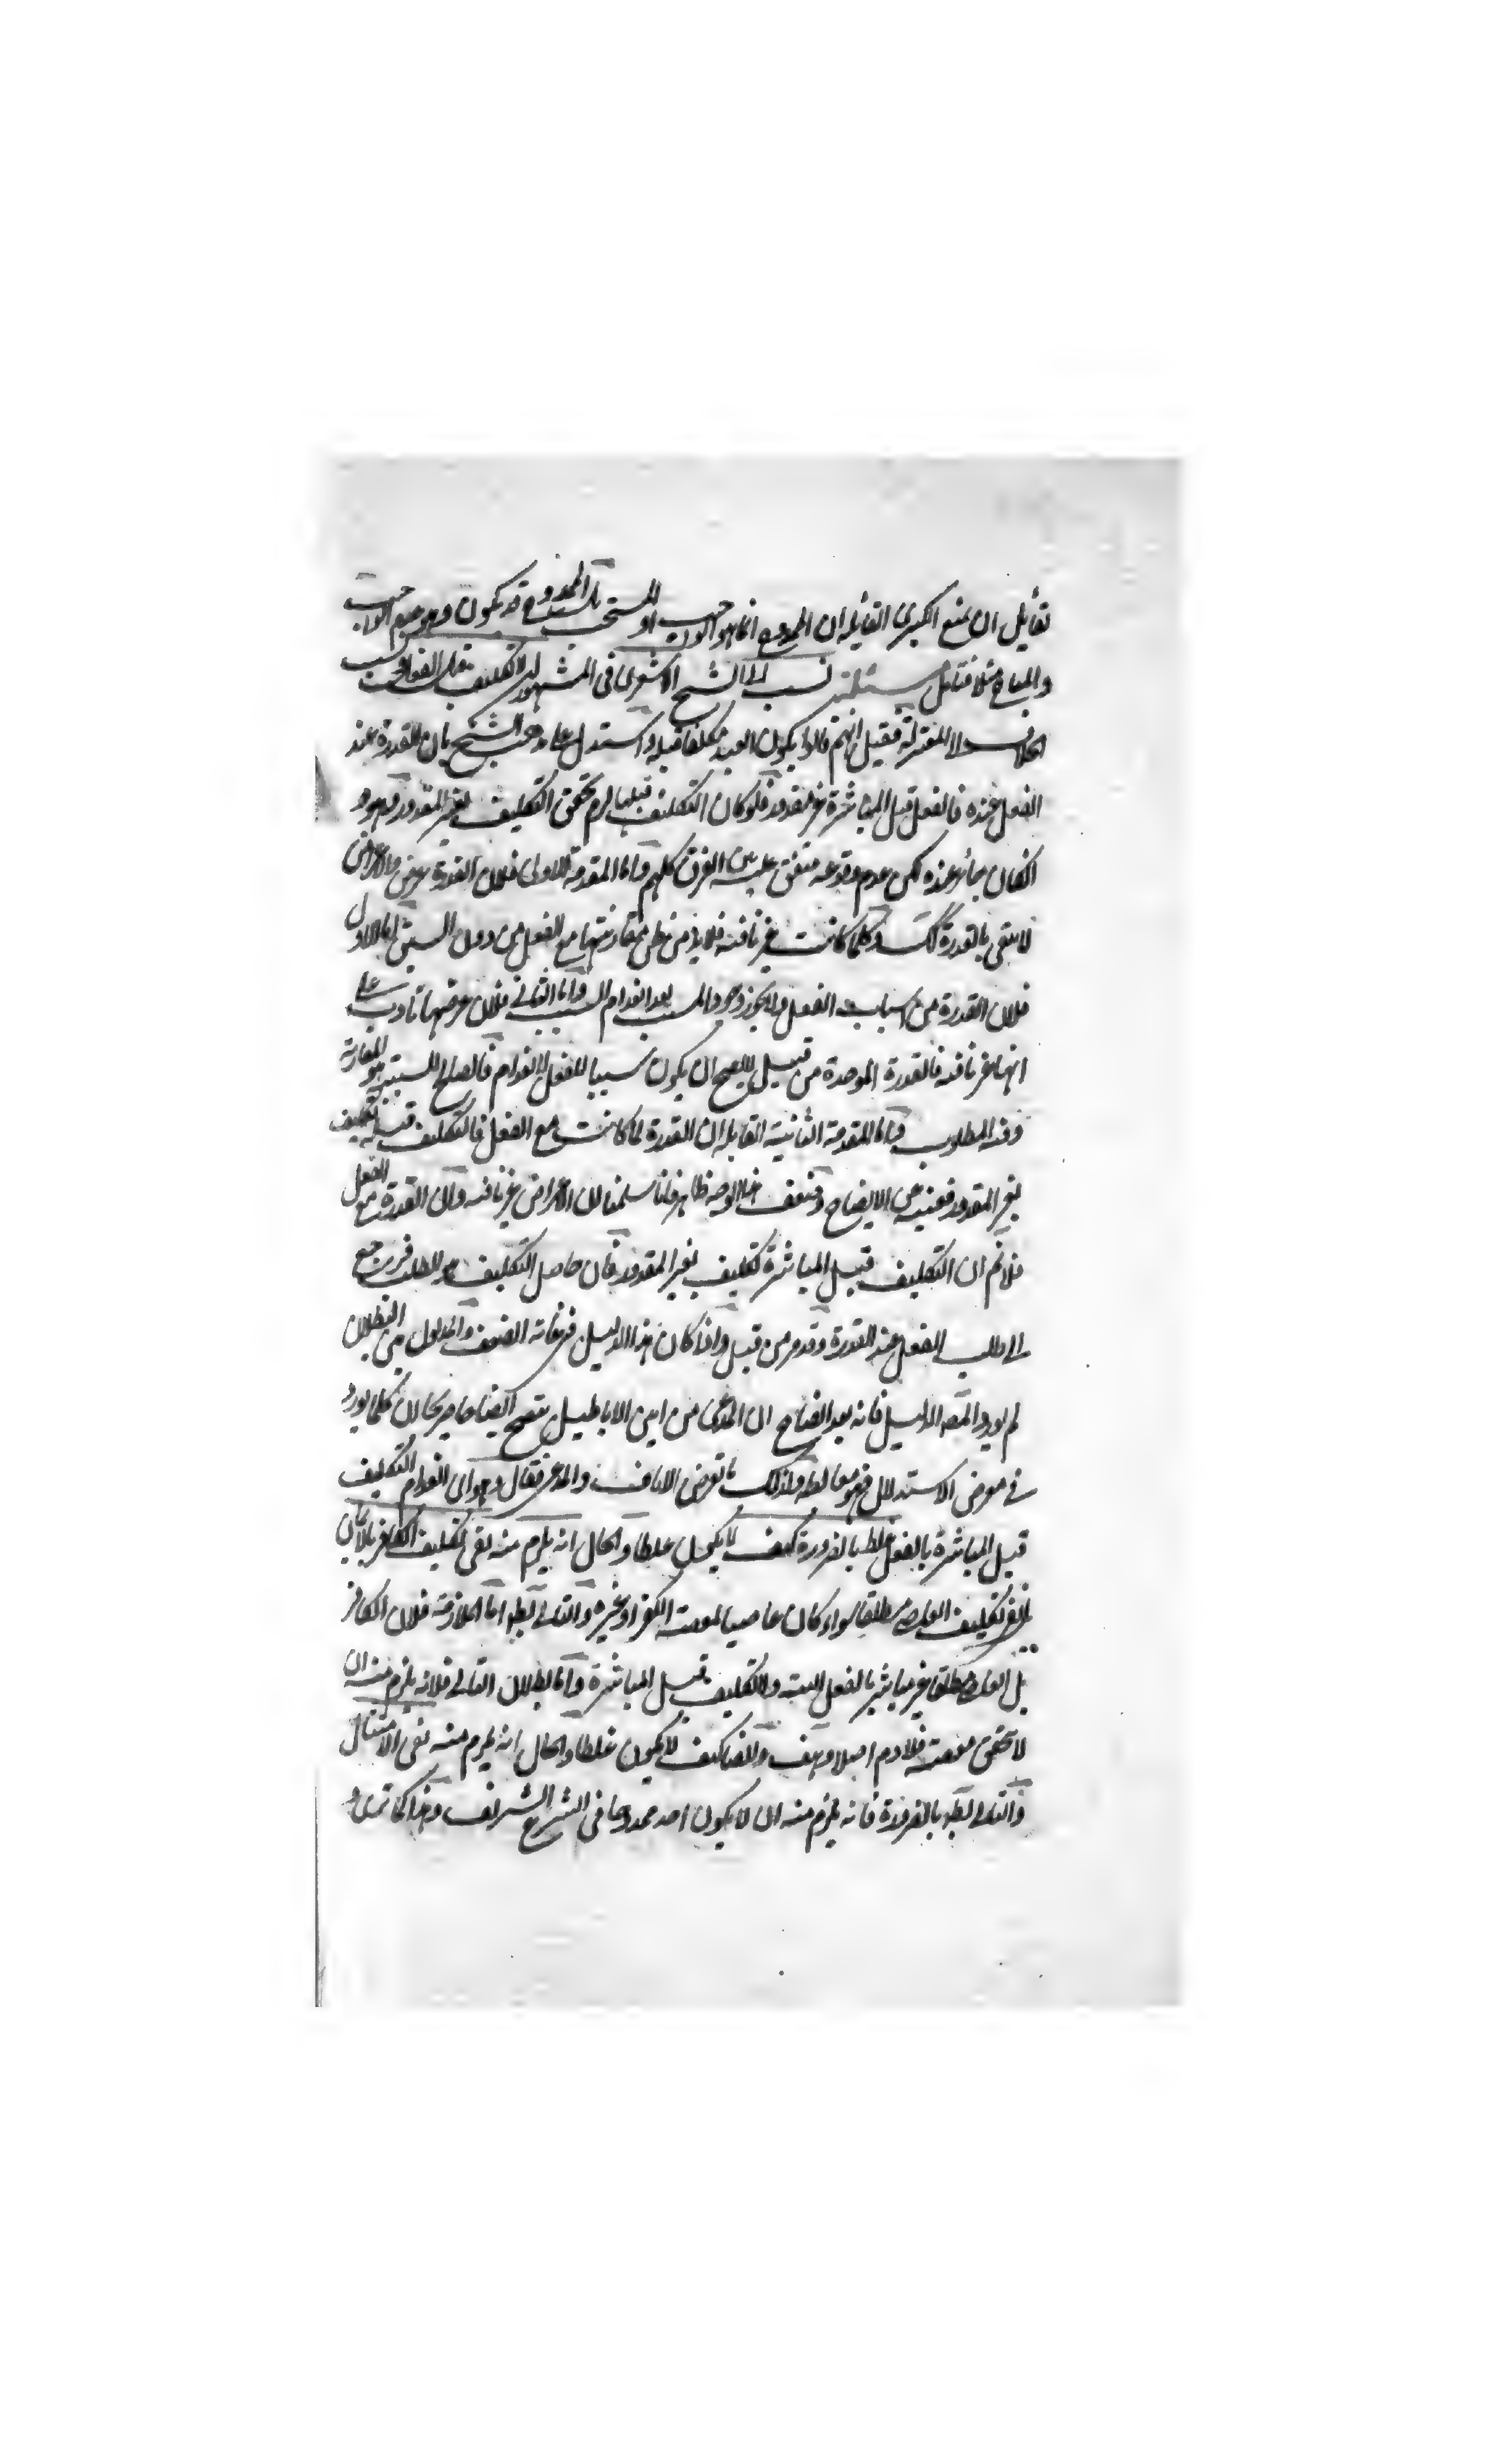 لقائل ان يمنع الكبرى القائلة ان الممدوح انما هو الواجب او المستحب بل الممدوح قد يكون وهو يعم الواجب
والمباح مثلا فتامل مسئلة نسب الى الشيخ الاشعرى فى المشهور ان لا تكليف قبل الفعل
خلافا للمعتزلة فقيل انهم قالوا يكون العبد مكلفا قبله واستدل على مذهب الشيخ بان القدرة عند
الفعل عنده فالفعل قبل المباشرة غير مقدور فلو كان التكليف قبلها لزم تحقق التكليف بغير المقدور وهو
كان جائزا عنده لكن عدم وقوعه متفق عليه بين الفرق كلهم واما المقدمة الاولى فلان القدرة عرض والاعراض
لا تبقى بالقدرة كك وكلما كانت غير باقية فلا بد من مقارنتها مع الفعل من دون السبق اما الاول
فلان القدرة من اسباب الفعل ولا يجوز وجود المسبب بعد انعدام السبب واما الثانى فلان عرضيتها تادت على
انها غير باقية فالقدرة الموجدة من قبل لا يصح ان يكون سببا للفعل لانعدام فالصالح للسببية هو المقارنة
وفيه المطلوب واما المقدمة الثانية القائلة ان القدرة لما كانت مع الفعل فالتكليف قبله تكليف
بغير المقدور فغنية عن الايضاح وضعف هذا الوجه ظاهر فانا سلمنا ان الاعراض غير باقية وان القدرة مع الفعل
فلا نم ان التكليف قبل المباشرة تكليف بغير المقدور فان حاصل التكليف هو الطلب فيرجع
الى طلب الفعل عند القدرة وقد مر من قبل واذا كان هذا الدليل فى غاية الضعف والمدلول بين البطلان
لم يورد المصـ الدليل فانه بعد ايضاح ان المدعى من ابين الاباطيل يتضح ايضاحا صريحا ان كلما يورد
فى معرض الاستدلال فهو مغالطة ولذلك ما تعرض الا والمدعى فقال وهو اى انعدام التكليف
قبل المباشرة بالفعل غلط بالضرورة كيف لا يكون غلطا والحال انه يلزم منه نفى تكليف الكافر بالايمان
بل نفى تكليف العاصى مطلقا سواء كان عاصيا لمعصية الكفر او غيره والتالى بط اما الملازمة فلان الكافر
بل العاصى مطلقا غير مباشر بالفعل البتة ولا تكليف قبل المباشرة واما بطلان التالى فلانه يلزم منه ان
لا تحقق معصية فلا ذم اصلا وهف وايضا كيف لا يكون غلطا والحال انه يلزم منه نفى الامتثال
والتالى بط بالضرورة فانه يلزم منه ان لا يكون احد ممدوحا فى الشرع الشريف وهذا كما ترى و